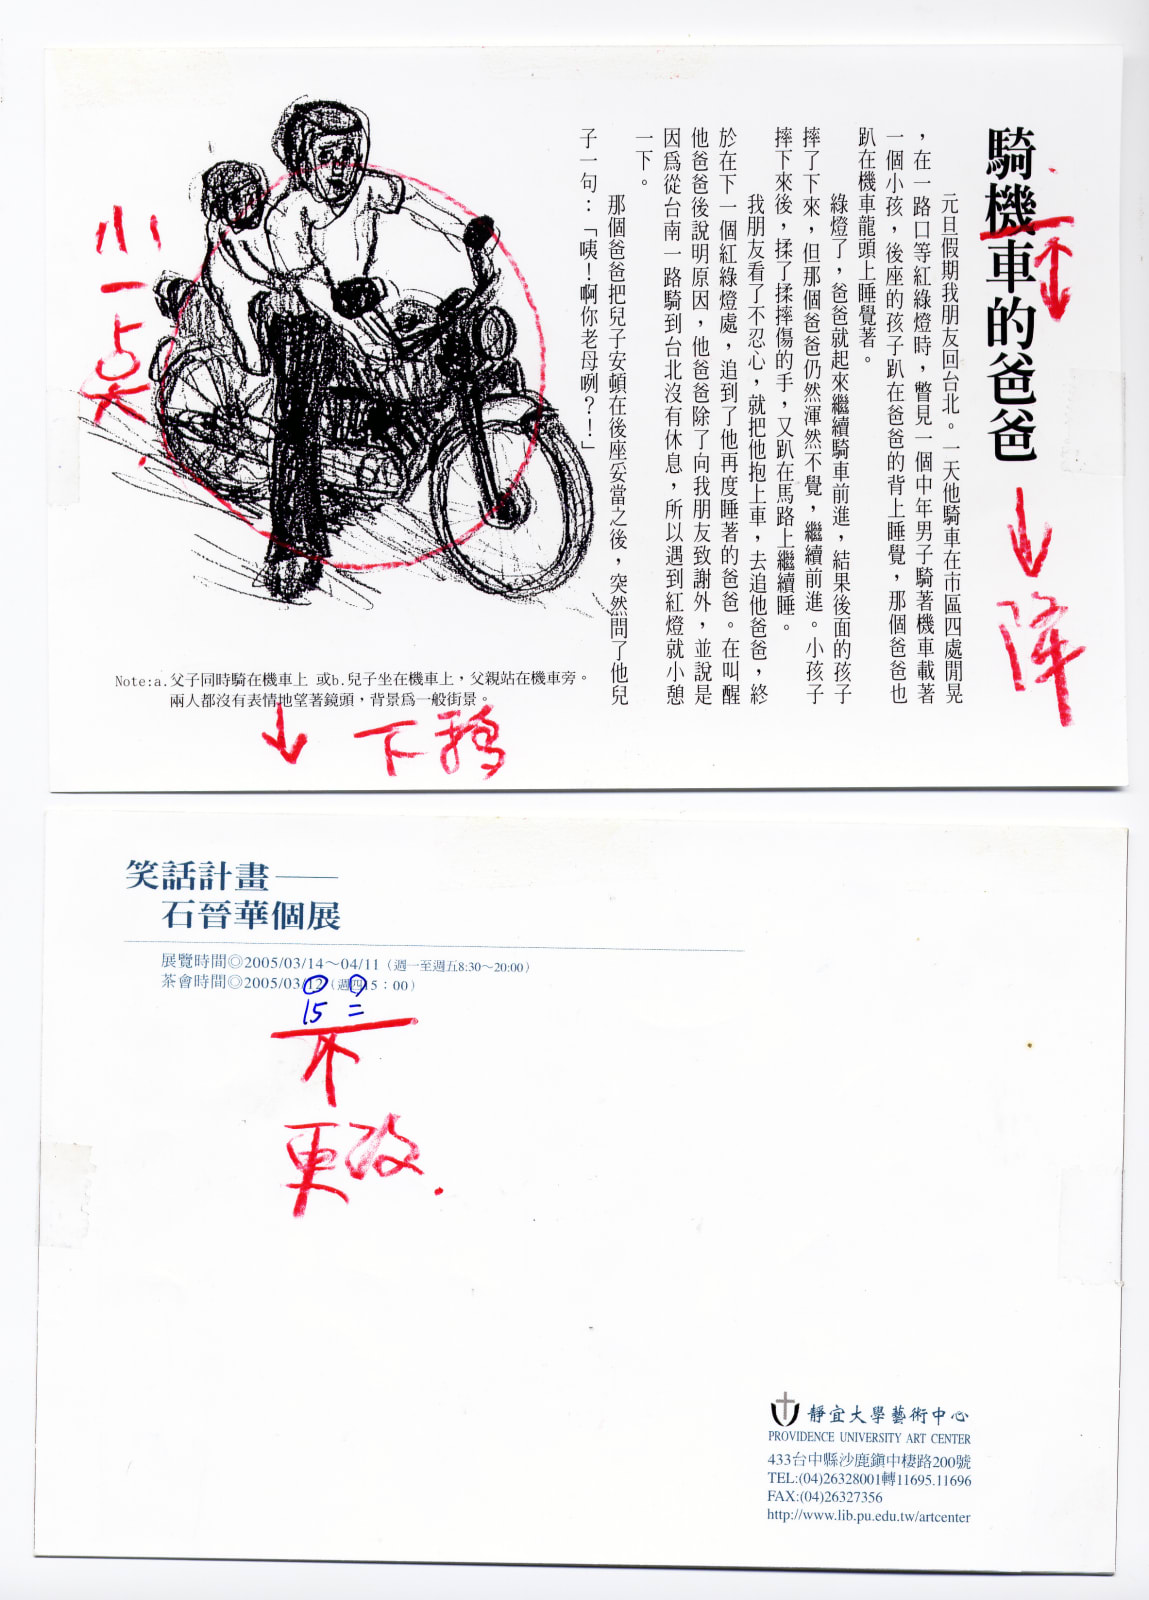 騎機車的爸爸
元旦假期我朋友回台北。一天他騎車在市區四處閒晃
，在一路口等紅綠燈時，瞥見一個中年男子騎著機車載著
一個小孩，後座的孩子趴在爸爸的背上睡覺，那個爸爸也
趴在機車龍頭上睡覺著。
綠燈了，爸爸就起來繼續騎車前進，結果後面的孩子
摔了下來，但那個爸爸仍然渾然不覺，繼續前進。小孩子
摔下來後，揉了揉摔傷的手，又趴在馬路上繼續睡。
我朋友看了不忍心，就把他抱上車，去追他爸爸，終
於在下一個紅綠燈處，追到了他再度睡著的爸爸。在叫醒
他爸爸後說明原因，他爸爸除了向我朋友致謝外，並說是
因爲從台南一路騎到台北沒有休息，所以遇到紅燈就小憩
一下。
那個爸爸把兒子安頓在後座妥當之後，突然問了他兒
子一句：「咦！啊你老母咧？！」
降
小一点
Note:a.父子同時騎在機車上 或b.兒子坐在機車上，父親站在機車旁。
兩人都沒有表情地望著鏡頭，背景爲一般街景。
笑話計畫——
石晉華個展
展覽時間◎2005/03/14～04/11（週一至週五8:30～20:00）
茶會時間◎2005/03/12（週四15：00）
15 二
更改.
靜宜大學藝術中心
PROVIDENCE UNIVERSITY ART CENTER
433台中縣沙鹿鎮中棲路200號
TEL:(04)26328001轉11695.11696
FAX:(04)26327356
http://www.lib.pu.edu.tw/artcenter